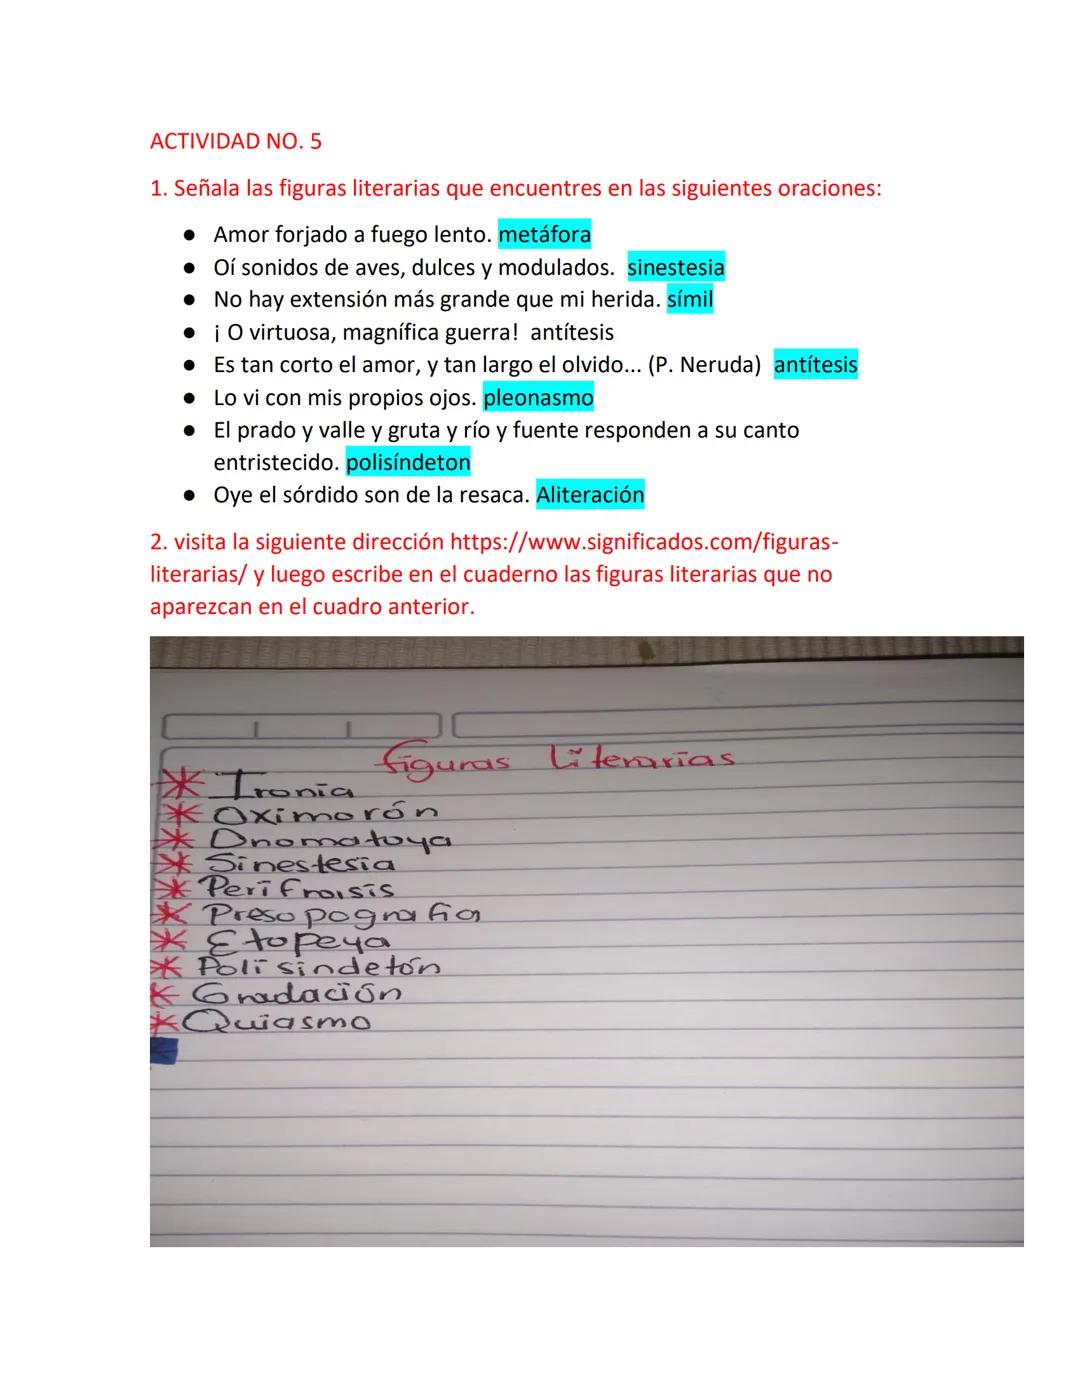 ACTIVIDAD NO. 5
1. Señala las figuras literarias que encuentres en las siguientes oraciones:
● Amor forjado a fuego lento. metáfora
● Oí sonidos de aves, dulces y modulados. sinestesia
● No hay extensión más grande que mi herida. símil
● ¡ O virtuosa, magnífica guerra! antítesis
● Es tan corto el amor, y tan largo el olvido... (P. Neruda) antítesis
● Lo vi con mis propios ojos. pleonasmo
● El prado y valle y gruta y río y fuente responden a su canto
entristecido. polisíndeton
● Oye el sórdido son de la resaca. Aliteración
2. visita la siguiente dirección https://www.significados.com/figuras-
literarias/ y luego escribe en el cuaderno las figuras literarias que no
aparezcan en el cuadro anterior.
figuras Literarias
* Ironia
* Oximorón
* Onomatoya
* Sinestesia
* Perifrasis
* Presopografia
* Etopeya
* Polisindetón
* Gradación
* Quiasmo